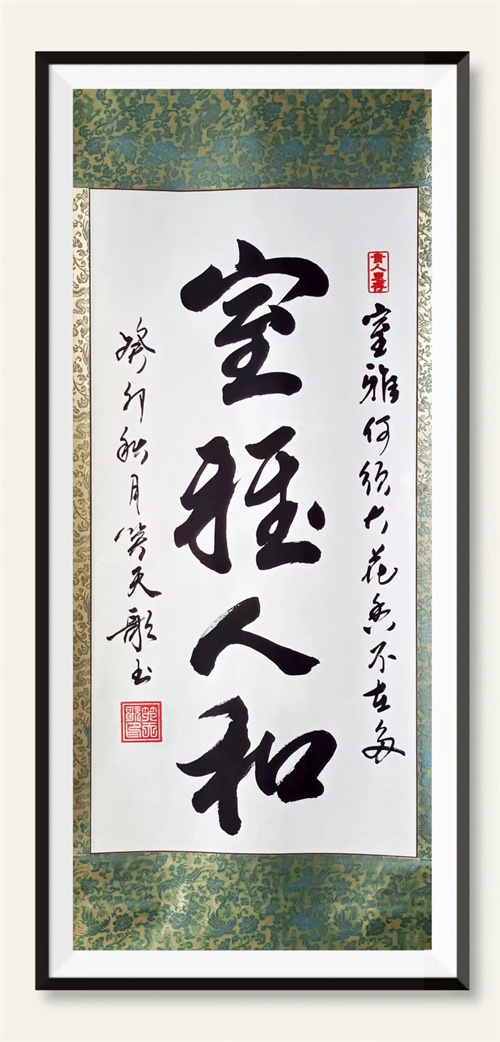 贵人惠存
室雅何须大花香不在多
室雅人和
癸卯秋月天歌书